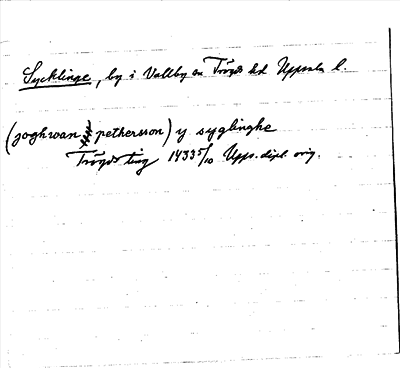 Sycklinge, by i Vallby sn Trögds hd Uppsala l.
(joghwan pethersson) y syglinghe
Trögds ting 1433 5/10 Upps. dipl. orig.